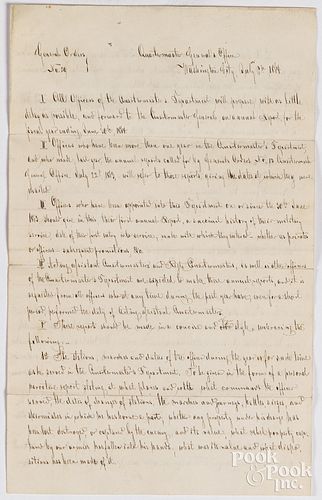 General Orders } Quartermaster General's Office
No. 29 Washington City July 2nd 1864
I. All Officers of the Quartermaster's Department will prepare with as little
delay as possible, and forward to the Quartermaster General an annual report for the
fiscal year ending June 30th 1864.
II. Officers who have been more than one year in the Quartermaster's Department
and who made last year the annual reports called for by General Orders No. 13 Quartermaster
General's Office, July 22nd 1863, will refer to those reports, giving the dates at which they were
mailed.
III. Officers who have been appointed into this Department on or since the 30th June
1863 should give in this their first annual report, a succinct history of their military
service date of their first entry into service, rank with which they entered whether as privates
or officers subsequent promotions &c.
IV. Acting Assistant Quartermasters and Regtl. Quartermasters, as well as other officers
of the Quartermaster's Department are expected to make these annual reports, and it is
expected from all officers who at any time during the past year have, even for a short
period performed the duty of Acting Assistant Quartermasters.
V. These reports should be made in a concise and clear style, embracing the
following;—
1st. The stations, marches and duties of the officer during the year or for such time
as he served in the Quartermaster's Department. To be given in the form of a personal
narrative report stating at what places and with what commands the officer
served, the dates of change of stations, the marches and journeys, battles, sieges, and
skirmishes in which he has borne a part, whether any property under his charge has
been lost, destroyed or captured by the enemy, and its value. What public property cap-
tured by our armies has fallen into his hands, what was its value and what dispo-
sitions has been made of it.
Pook &
Pook Inc.